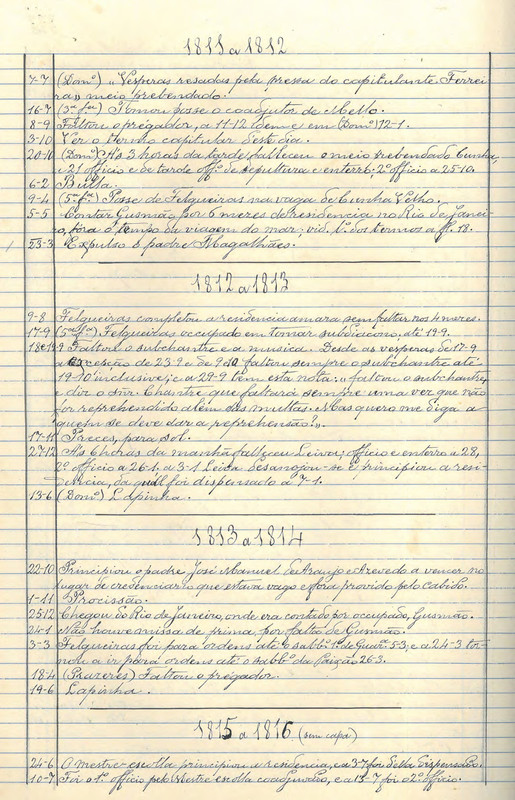 1811 a 1812
7-7 (Dom.º) "Vesperas resadas pela pressa do capitulante Ferrei
ra" meio prebendado.
16-7 (3ª fª) Tomou posse o coadjutor de Mello.
8-9 Faltou o prégador, a 11-12 idem e em (Dom.º) 12-1.
3-10 Ver o termo capitular d'este dia.
20-10 (Dom.º) Ás 3 horas da tarde falleceu o meio prebendado Cunha,
e 21 officio e de tarde off.º de sepultura e enterro; 2º officio a 25-10.
6-2 Bulla.
9-4 (5ª fª) Posse de Felgueiras na vaga de Cunha Velho.
5-5 Contar Gusmão por 6 mezes de residencia no Rio de Janei-
ro, fóra o tempo da viagem do mar; vid. L. dos termos a fl. 18.
23-3 Expulso o padre Magalhães.
1812 a 1813
9-8 Felgueiras completou a residencia amara sem faltar nos 4 mezes.
17-9 (5ª fª) Felgueiras occupado em tomar subdiacono, até 19-9.
18 e 19-9 Faltou o subchantre e a musica. Desde as vesperas de 17-9
a excepção de 23-9 e de 9-10 faltou sempre o subchantre até
19-10 inclusive; e a 29-9 tem esta nota: "faltou o subchantre,
e diz o snr. Chantre que faltará sempre uma vez que não
for reprehendido além das multas. Mas quero me diga a
quem se deve dar a reprehensão?".
17-11 Preces, para sol.
27-12 Ás 6 horas da manhã falleceu Leiva; officio e enterro a 28,
2º officio a 26-1, a 3-1 Leiva desanojou-se e principiou a resi-
dencia, da qual foi dispensado a 7-1.
13-6 (Dom.º) Lapinha.
1813 a 1814
22-10 Principiou o padre José Manuel de Araujo e Azevedo a vencer no
lugar de credenciario que estava vago e fôra provido pelo Cabido.
1-11 Procissão.
25-12 Chegou do Rio de Janeiro, onde era contado por occupado, Gusmão.
24-1 Não houve missa de prima, por falta de Gusmão.
3-3 Felgueiras foi para ordens até o sabb.º 1º de Quar. 5-3, e a 24-3 tor-
nou a ir para ordens até o sabb.º da Paixão 26-3.
18-4 (Prazeres) Faltou o prégador.
19-6 Lapinha.
1815 a 1816 (sem capa)
24-6 O mestre-escolla principiou a residencia, e a 3-7 foi d'ella dispensado.
10-7 Foi o 1º officio pelo Mestre escolla coadjuvado, e a 13-7 foi o 2º officio.